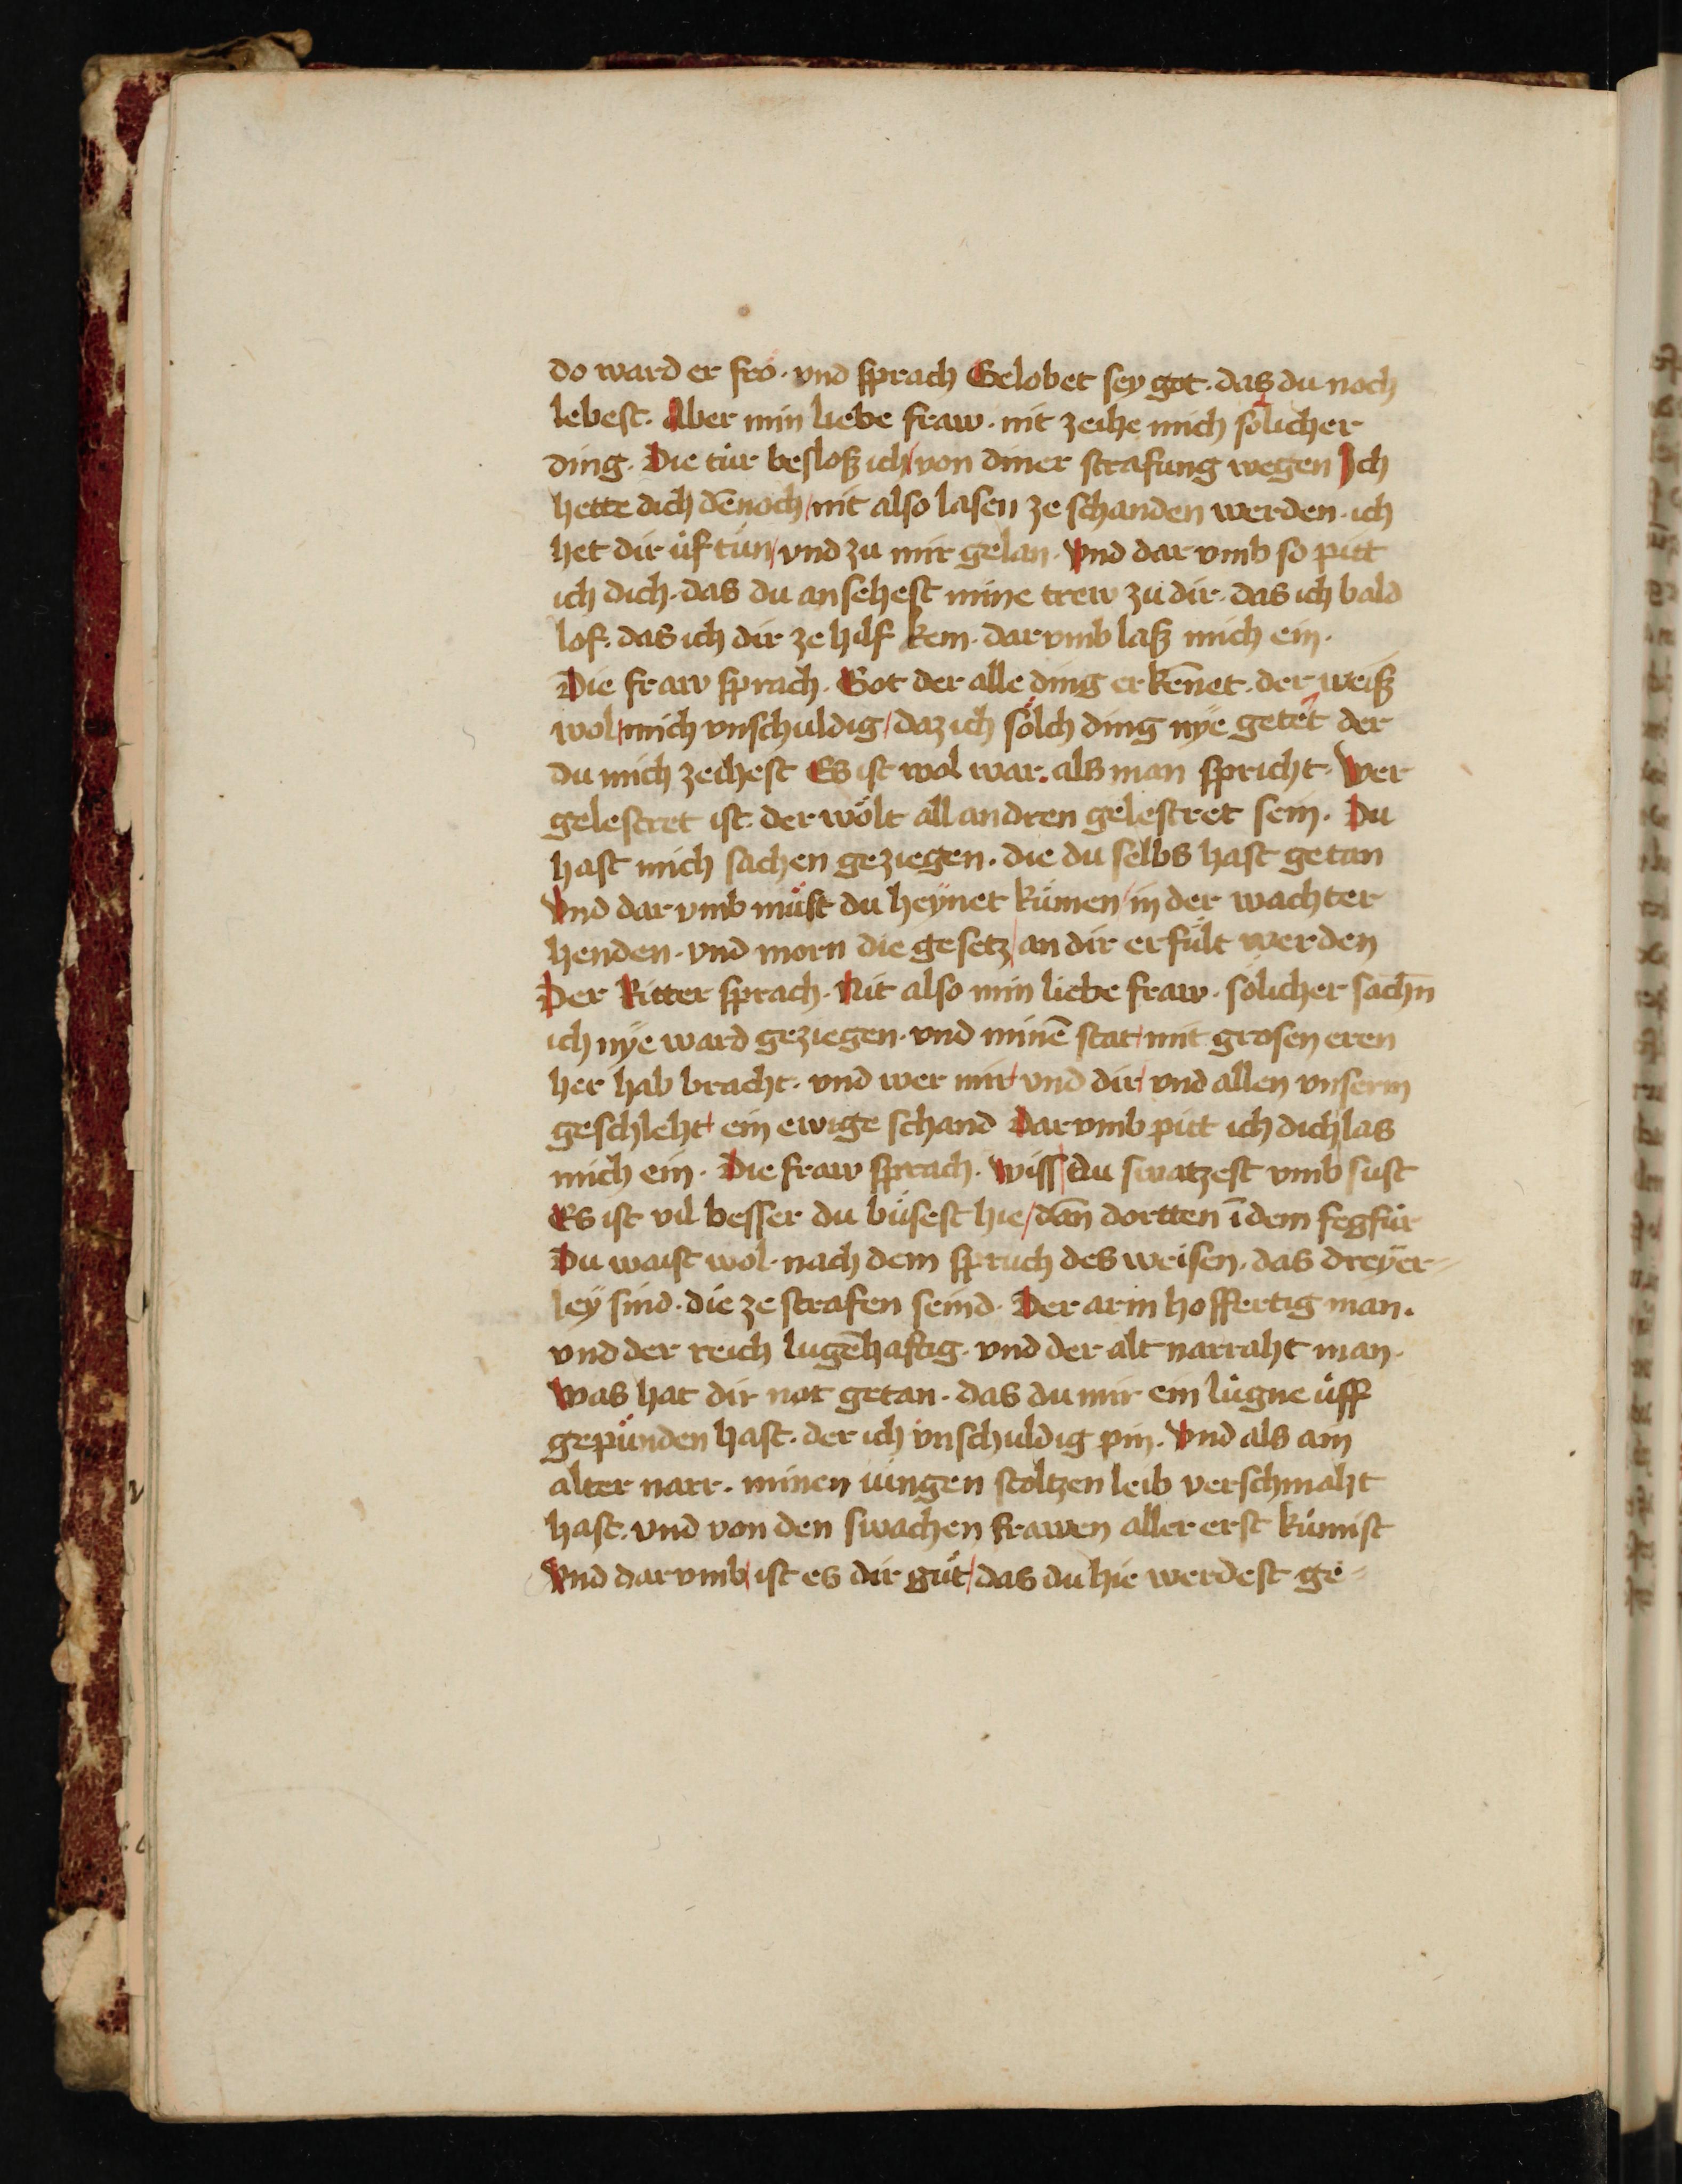 do ward er fro · vnd sprach Gelobet sey got · das du noch
lebest · Aber min liebe fraw · nit zeihe mich sölicher
ding · Die tür besloß ich / von diner strafung wegen Ich
hette dich dēnoch / nit also lasen ze schanden werden · ich
het dir üf tun / vnd zu mir gelan · Vnd dar vmb so pitt
ich dich · das du an sehest mine trew zu dir · das ich bald
lof · das ich dir ze hilf kem · dar vmb laß mich ein ·
Die fraw sprach · Got der alle ding er kēnet · der weiß
wol / mich vnschuldig / daz ich sölch ding nye getet der
du mich zeihest Es ist wol war · als man spricht · Wer
gelestret ist · der wölt all andren gelestret sein · Du
hast mich sachen geziegen · die du selbs hast getan
Vnd dar vmb müst du heÿnet kümen / in der wachter
henden · vnd morn die gesetz / an dir erfült werden
Der Ritter sprach · Nit also min liebe fraw · sölicher sachn̄
ich nÿe ward geziegen · vnd minē stat / mit grosen eren
her hab bracht · vnd wer mir / vnd dir / vnd allen vnserm
geschleht / ein ewige schand Dar vmb pitt ich dich las
mich ein · Die fraw sprach · Wiss / du swatzest vmb sust
Es ist vil besser du büsest hie / dan̄ dortten ī dem fegfür
Du waist wol · nach dem spruch des weisen · das dreÿer-
leÿ sind · die ze strafen seind · Der arm hoffertig man ·
vnd der reich lugēhaftig · vnd der alt narraht man ·
Was hat dir not getan · das du mir ein lügne üff
gepünden hast · der ich vnschuldig pin · Vnd als ain
alter narr · minen iungen stoltzen leib verschmaht
hast · vnd von den swachen frawen aller erst kümist
Vnd dar vmb / ist es dir güt / das du hie werdest ge-